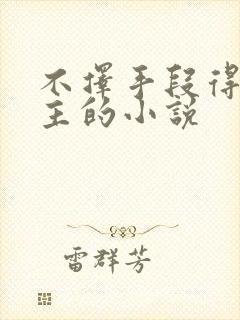 不擇手段得
主的小說
雷群芳